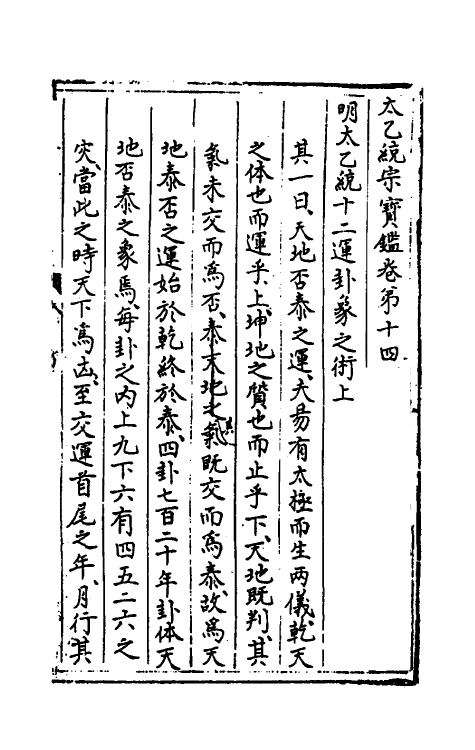 太乙統宗寶鑑卷第十四
明太乙統十二運卦象之術上
其一曰天地否泰之運夫易有太極而生兩儀乾天
之体也而運乎上坤地之質也而止乎下天地既判其
氣未交而為否泰天地之氣既交而為泰故為天
地泰否之運始於乾終於泰四卦七百二十年卦体天
地否泰之象焉每卦之内上九下六有四五二六之
灾當此之時天下為凶至交運首尾之年月行其